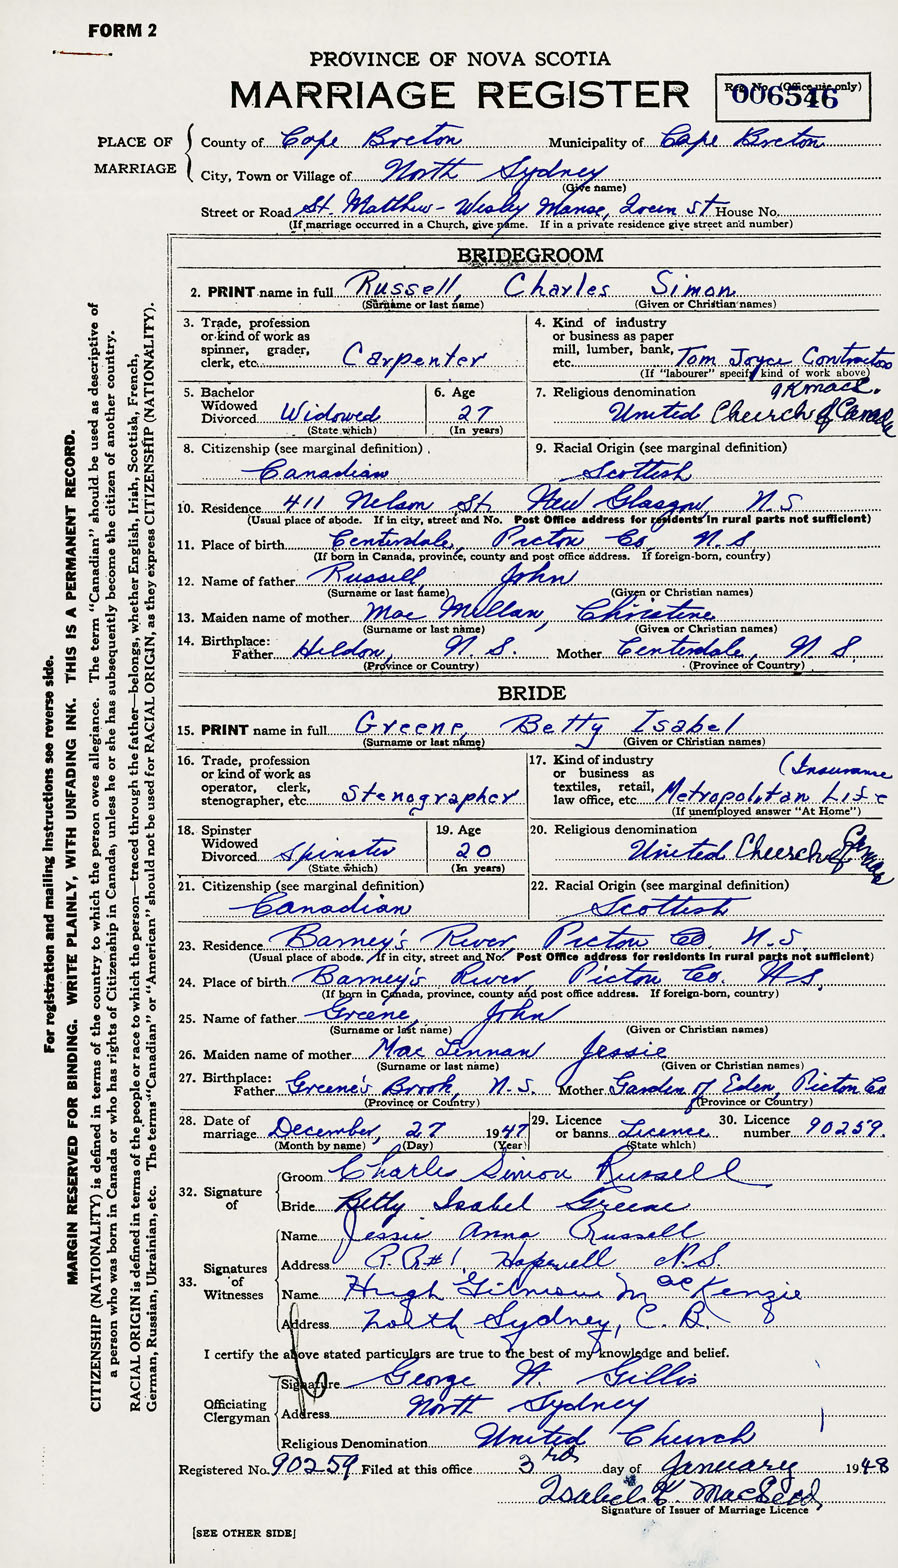 FORM 2
PROVINCE OF NOVA SCOTIA
MARRIAGE REGISTER
Reg. No. (Office use only)
006546
PLACE OF MARRIAGE
County of Cape Breton Municipality of Cape Breton
City, Town or Village of North Sydney
(Give name)
Street or Road St. Matthew - Wesley Manse, Queen St House No.
(If marriage occurred in a Church, give name. If in a private residence give street and number)
BRIDEGROOM
2. PRINT name in full Russell, Charles Simon
(Surname or last name) (Given or Christian names)
3. Trade, profession or kind of work as spinner, grader, clerk, etc. Carpenter
4. Kind of industry or business as paper mill, lumber, bank, etc. Tom Joyce Contractor
(If "labourer" specify kind of work above)
5. Bachelor Widowed Divorced Widowed
(State which)
6. Age 27
(In years)
7. Religious denomination United Church of Canada
8. Citizenship (see marginal definition)
Canadian
9. Racial Origin (see marginal definition)
Scottish
10. Residence 411 Nelson St. New Glasgow, N.S
(Usual place of abode. If in city, street and No. Post Office address for residents in rural parts not sufficient)
11. Place of birth Centerdale, Picton Co, N.S.
(If born in Canada, province, county and post office address. If foreign-born, country)
12. Name of father Russell, John
(Surname or last name) (Given or Christian names)
13. Maiden name of mother Mac Millan, Christine
(Surname or last name) (Given or Christian names)
14. Birthplace:
Father Hildon, N.S. Mother Centerdale, N S
(Province or Country) (Province or Country)
BRIDE
15. PRINT name in full Greene, Betty Isabel
(Surname or last name) (Given or Christian names)
16. Trade, profession or kind of work as operator, clerk, stenographer, etc Stenographer
17. Kind of industry or business as textiles, retail, law office, etc Metropolitan Life (Insurance
(If unemployed answer "At Home")
18. Spinster Widowed Divorced Spinster
(State which)
19. Age 20
(In years)
20. Religious denomination United Church of Canada
21. Citizenship (see marginal definition)
Canadian
22. Racial Origin (see marginal definition)
Scottish
23. Residence Barney's River, Picton Co. N.S.
(Usual place of abode. If in city, street and No. Post Office address for residents in rural parts not sufficient)
24. Place of birth Barney's River, Picton Co. N.S.
(If born in Canada, province, county and post office address. If foreign-born, country)
25. Name of father Greene, John
(Surname or last name) (Given or Christian names)
26. Maiden name of mother Mac Lennan Jessie
(Surname or last name) (Given or Christian names)
27. Birthplace:
Father Greene's Brook, N.S. Mother Garden of Eden, Picton Co
(Province or Country) (Province or Country)
28. Date of marriage December, 27 1947
(Month by name) (Day) (Year)
29. Licence or banns Licence
(State which)
30. Licence number 90259.
32. Signature of
Groom Charles Simon Russell
Bride Betty Isabel Greene
33. Signatures of Witnesses
Name Jessie Anna Russell
Address R.R#1, Hopewell N.S.
Name Hugh Gilmour MacKenzie
Address North Sydney, C.B.
I certify the above stated particulars are true to the best of my knowledge and belief.
Officiating Clergyman
Signature George W Gillis
Address North Sydney
Religious Denomination United Church
Registered No. 90259 Filed at this office 3rd day of January 1948
Isabel K. MacLeod
Signature of Issuer of Marriage Licence
[SEE OTHER SIDE]
For registration and mailing instructions see reverse side.
MARGIN RESERVED FOR BINDING. WRITE PLAINLY, WITH UNFADING INK. THIS IS A PERMANENT RECORD.
CITIZENSHIP (NATIONALITY) is defined in terms of the country to which the person owes allegiance. The term "Canadian" should be used as descriptive of
a person who was born in Canada or who has rights of Citizenship in Canada, unless he or she has subsequently become the citizen of another country.
RACIAL ORIGIN is defined in terms of the people or race to which the person—traced through the father—belongs, whether English, Irish, Scottish, French,
German, Russian, Ukrainian, etc. The terms "Canadian" or "American" should not be used for RACIAL ORIGIN, as they express CITIZENSHIP (NATIONALITY).